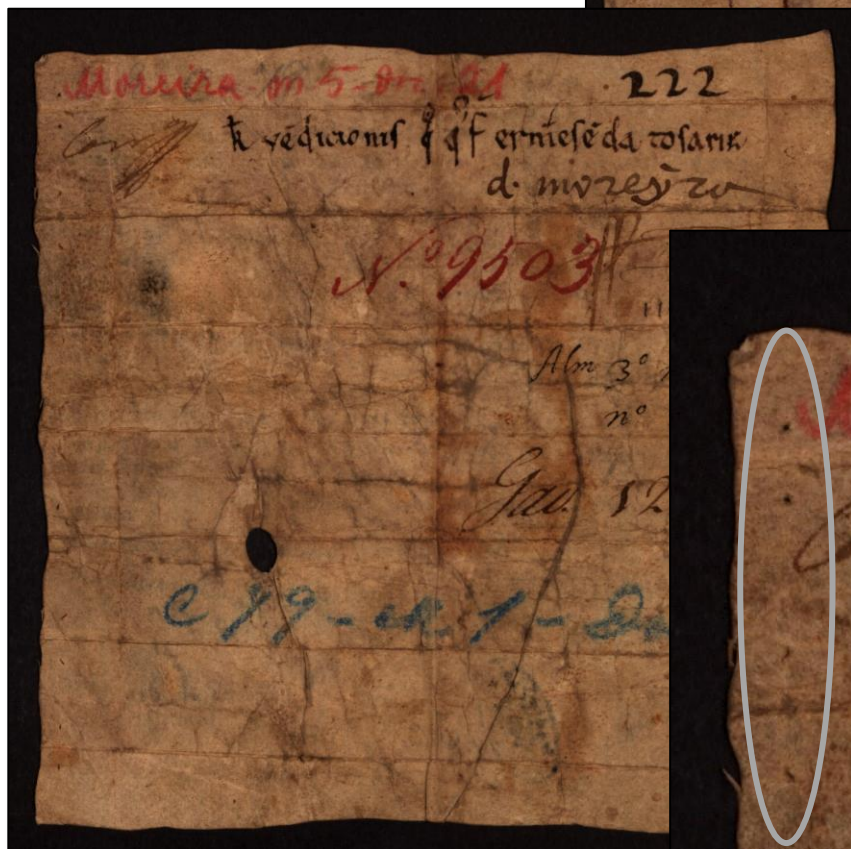 Moreira - m 5 - dn. 21
222
k vēdicionis q̊ q̊ f ermesēda tosariz
d. moreyra
N.º 9503
11
Alm 3º
nº
Gav. 12
C 79 - m 1 -